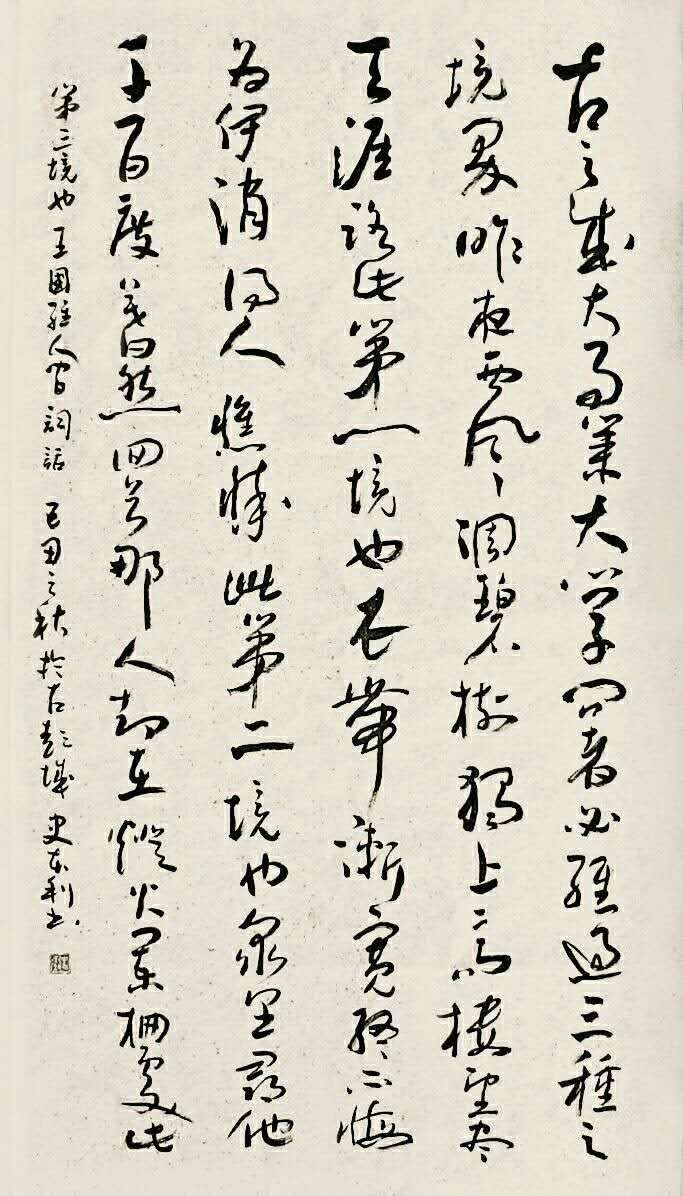 古之成大事業大學問者必經過三種之
境界昨夜西風凋碧樹獨上高樓望尽
天涯路此第一境也衣帶漸寬終不悔
為伊消得人憔悴此第二境也眾里尋他
千百度驀然回首那人却在燈火闌柵處此
第三境也王國維人間詞話 己丑之秋於古彭城 史東利書